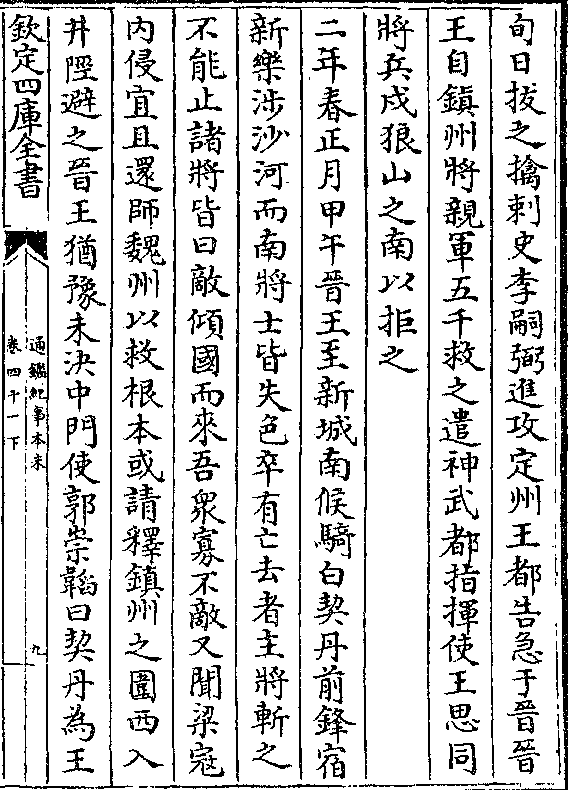 旬日拔之擒刺史李嗣弼進攻定州王都告急于晉晉
王自鎮州將親軍五千救之遣神武都指揮使王思同
將兵戍狼山之南以拒之
二年春正月甲午晉王至新城南候騎白契丹前鋒宿
新樂涉沙河而南將士皆失色卒有亡去者主將斬之
不能止諸將皆曰敵傾國而來吾衆寡不敵又聞梁寇
内侵宜且還師魏州以救根本或請釋鎮州之圍西入
井陘避之晉王猶豫未決中門使郭崇韜曰契丹為王
欽定四庫全書
通鑑紀事本末
卷四十一下
九